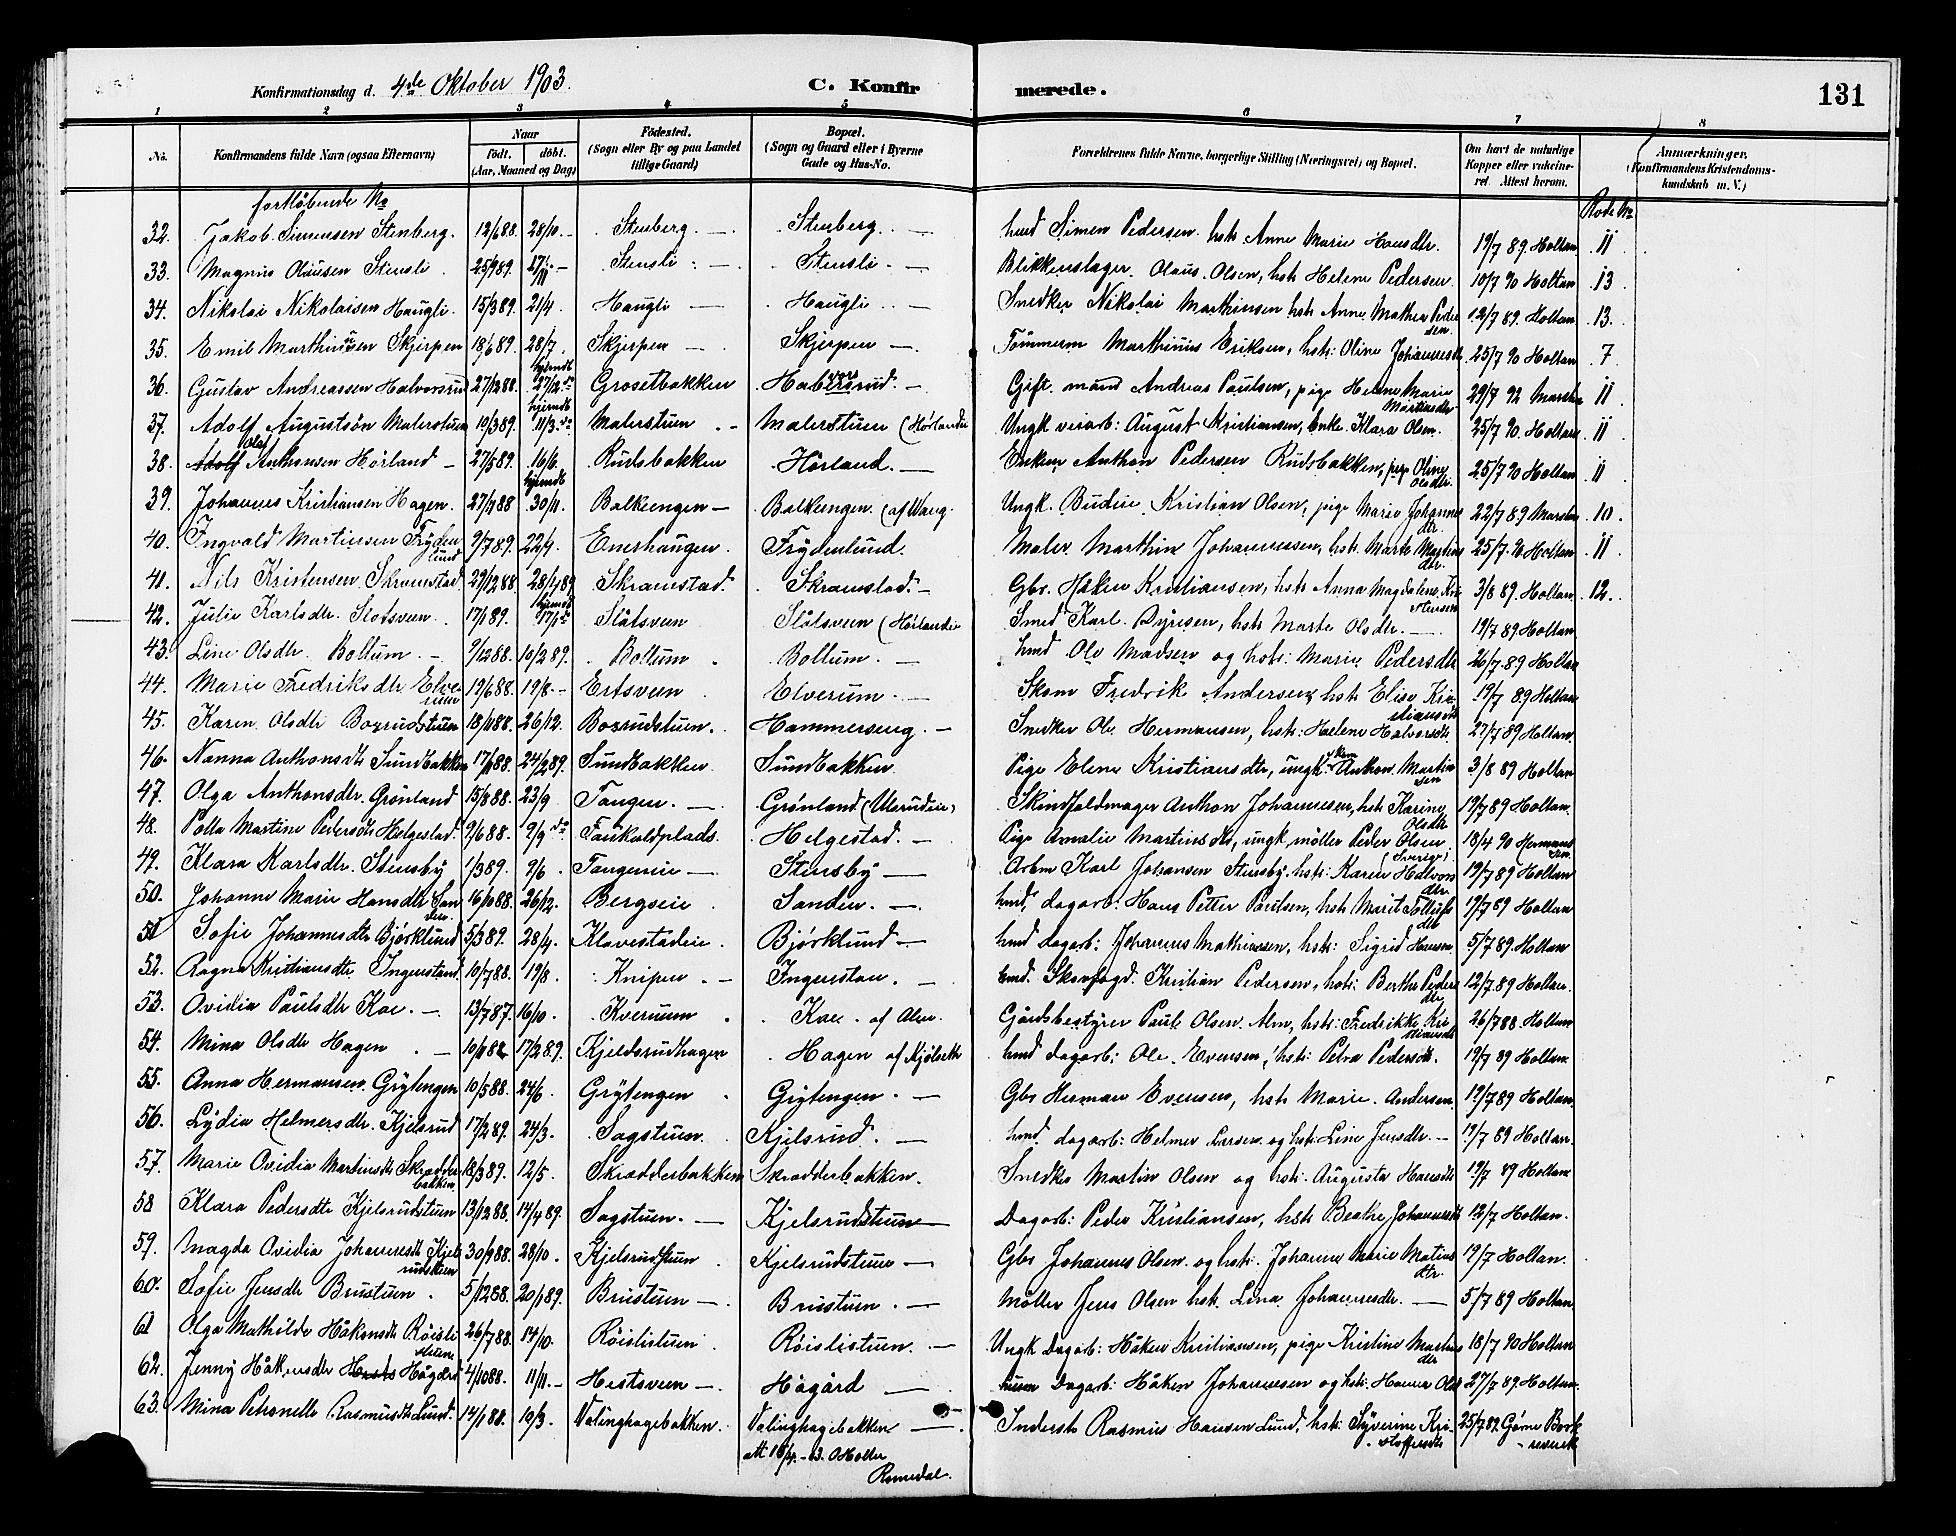 Konfirmationsdag d. 4de Oktober 1903.
C. Konfir
merede.
131
1 2 3 4 5 6 7 8
No. Konfirmandens fulde Navn (ogsaa Efternavn) Naar födt. döbt. (Aar, Maaned og Dag) Födested. (Sogn eller By og paa Landet tillige Gaard) Bopæl. (Sogn og Gaard eller i Byerne Gade og Hus-No. Forældrenes fulde Navne, borgerlige Stilling (Næringsvei) og Bopæl. Om havt de naturlige Kopper eller vakcineret. Attest herom. Anmærkninger. (Konfirmandens Kristendomskundskab m. V.)
fortløbende No Rode No
32. Jakob Simensen Stenberg. 12/6 88. 28/10. Stenberg. Stenberg. Simen Pedersen hstr. Anne Marie Hansdtr. 19/7 89. Holtan 11
33. Magnus Olausen Stensli. 25/9 89. 17/11. Stensli Stensli Blikkenslager Olaus Olsen, hstr Helene Pedersen. 10/7 90 Holtan 13
34. Nikolai Nikolaisen Haugli. 15/3 89. 21/4. Haugli Haugli Snedker Nikolai Marthinsen hstr Anne Mathea Pedersen. 12/7 89. Holtan 13.
35. Emil Marthinsen Skjerpen 18/6 89. 28/7. Skjerpen Skjerpen Tømmerm Marthinus Eriksen, hstr: Oline Johannesdtr 25/7 90 Holtan 7
36. Gustav Andreassen Halvorsrud 27/12 88. hjemdt 27/12 Grosetbakken Halvorsrud. Gift mand Andreas Paulsen, pige Helene Marie Martinsdtr 29/7 92 11
37. Adolf Augustsön Malerstuen 10/3 89. hjemdt 11/3. Malerstuen Malerstuen (Hörlandeie Ungk August Kristiansen, Enke Klara Olsen. 25/7 90. Holtan 11
38. Adolf Olaf Anthonsen Hörland 27/5 89. 16/6. Rudsbakken Hörland. Enkem Anthon Pedersen Rudsbakken, pige Oline Olsdtr. 25/7 90 Holtan 11
39. Johannes Kristiansen Hagen. 27/11 88 hjemdt 30/11. Balkeengen Balkeengen (af Vang. Ungk. Kristian Olsen, pige Marie Johannesdtr 22/7 89 10.
40. Ingvald Martinsen Frydenlund 9/7 89. 22/9. Enerhaugen. Frydenlund. Maler Marthin Johannessen, hstr. Marte Martinsdtr. 25/7. 90 Holtan 11
41. Nils Kristensen Skramstad 29/12 88 28/4 89 Skramstad. Skramstad. Gbr. Håken Kristiansen, hstr Anna Magdalene Kristensen 3/8 89. Holtan. 12.
42. Julie Karlsdtr. Slotsveen 17/1 89. hjemdt 17/1 Slåtsveen Slåtsveen (Hörlandeie Smed Karl Dyresen, hstr Marte Olsdtr. 19/7 89. Holtan
43. Line Olsdtr. Bollum. 9/12 88. 10/2 89. Bollum Bollum. Ole Madsen og hstr: Marie Pedersdtr 26/7 89 Holtan
44. Marie Fredriksdtr Elverum 19/6 88. 19/8. Ertsveen Elverum. Skom Fredrik Andersen, hstr Elise Kristiansdtr 19/7 89 Holtan
45. Karen Olsdtr Boxrudstuen 18/11 88 26/12. Boxrudstuen. Hammerseng. Snedker Ole Hermansen, hstr: Helene Halvorsdtr. 27/7 89 Holtan.
46. Nanna Anthonsdtr Sundbakken 17/11 88. 24/2 89. Sundbakken Sundbakken Pige Elene Kristiansdtr, ungk: Anthon Martinsen 3/8 89 Holtan
47. Olga Anthonsdtr. Grönland 15/8 88. 23/9 Tangen. Grönland (Ulsrudeie) Skindfeldmager Anthon Johannesen, hstr Karine Olsdtr 19/7 89 Holtan.
48. Polla Martine Pedersdtr Helgestad. 9/6 88. 9/9 Taukoldplads. Helgestad. Pige Amalie Martinsdtr, ungk, möller Peder Olsen (Sverige) 18/4 90 Hermansen
49. Klara Karlsdtr. Stensby 1/3 89. 9/6. Tangeneie Stensby Arbm Karl Johansen Stensby hstr: Karen Halvorsdtr 19/7 89 Holtan
50. Johanne Marie Hansdtr Sanden. 16/10 88. 26/12. Bergseie Sanden. dagarb. Hans Petter Paulsen, hstr Marit Tollefsdtr 19/7 89 Holtan
51 Sofie Johannesdtr Björklund 5/3 89. 28/4. Klavestadeie. Björklund dagarb: Johannes Mathiassen, hstr: Sigrid Hansen 5/7 89 Holtan
52. Ragna Kristiansdtr Ingerstad 10/7 88. 19/8. Knipen Ingerstan. Skovfogd. Kristian Pedersen, hstr: Berthe Pedersdtr 12/7. 89 Holtan.
53. Ovidia Paulsdtr Koe. 13/7 87. 16/10. Kvernum Koe af Alm. Gårdsbestyrer Paul Olsen Alm, hstr: Fredrikke Kristiansdtr 26/7 88 Holtan
54. Mina Olsdtr Hagen 17/2 89. Kjeldsrudhagen Hagen af Kjölseth dagarb: Ole Evensen, hstr: Petra Pedersdtr. 19/7 89 Holtan
55. Anna Hermansen Grytengen 10/5 88. 24/6. Grytengen Grytengen. Gbr Herman Evensen, hstr Marie Andersen. 19/7 89 Holtan.
56. Lydia Helmersdtr. Kjelsrud 17/2 89. 24/3. Sagstuen. Kjelsrud. dagarb: Helmer Larsen og hstr Line Jensdtr. 19/7 89 Holtan.
57. Marie Ovidia Martinsdtr Skradderbakken 18/3 89. 12/5. Skradderbakken Skradderbakken. Snedker Martin Olsen og hstr. Augusta Hansdtr 19/7 89 Holtan
58 Klara Pedersdtr Kjelsrudstuen 13/12 88. 14/4 89. Sagstuen. Kjelsrudstuen Dagarb: Peder Kristiansen, hstr Beathe Johannesdtr 12/7 Holtan.
59. Magda Ovidia Johannesdtr Kjelsrudstuen 30/9 88. 28/10. Kjelsrudstuen Kjelsrudstuen Gbr Johannes Olsen og hstr. Johanne Marie Matiasdtr. 19/7 Holtan.
60. Sofie Jensdtr Brustuen. 5/12 88. 20/1 89. Brustuen Brustuen. Möller Jens Olsen hstr. Lena Johannesdtr. 5/7 89 Holtan.
61 Olga Mathilde Håkensdtr Röislistuen 26/7 88. 14/10. Röislistuen Röislistuen. Ungk Dagarb: Håken Kristiansen, pige Kristine Martinsdtr 18/7 90 Holtan
62. Jenny Håkensdtr Högård 4/10 88. 11/11. Hestsveen Högård Dagarb: Håken Johannesen og hstr. Hanna Olsdtr 27/7 89. Holtan.
63. Mina Petronelle Rasmusdtr Lund. 14/1 88. 19/3. Valinghagebakken. Valinghagebakken Inderst Rasmus Hansen Lund, hstr: Syverine Kristoffersdtr 25/7 89
att 16/4. - 03. O Holter
Romedal.